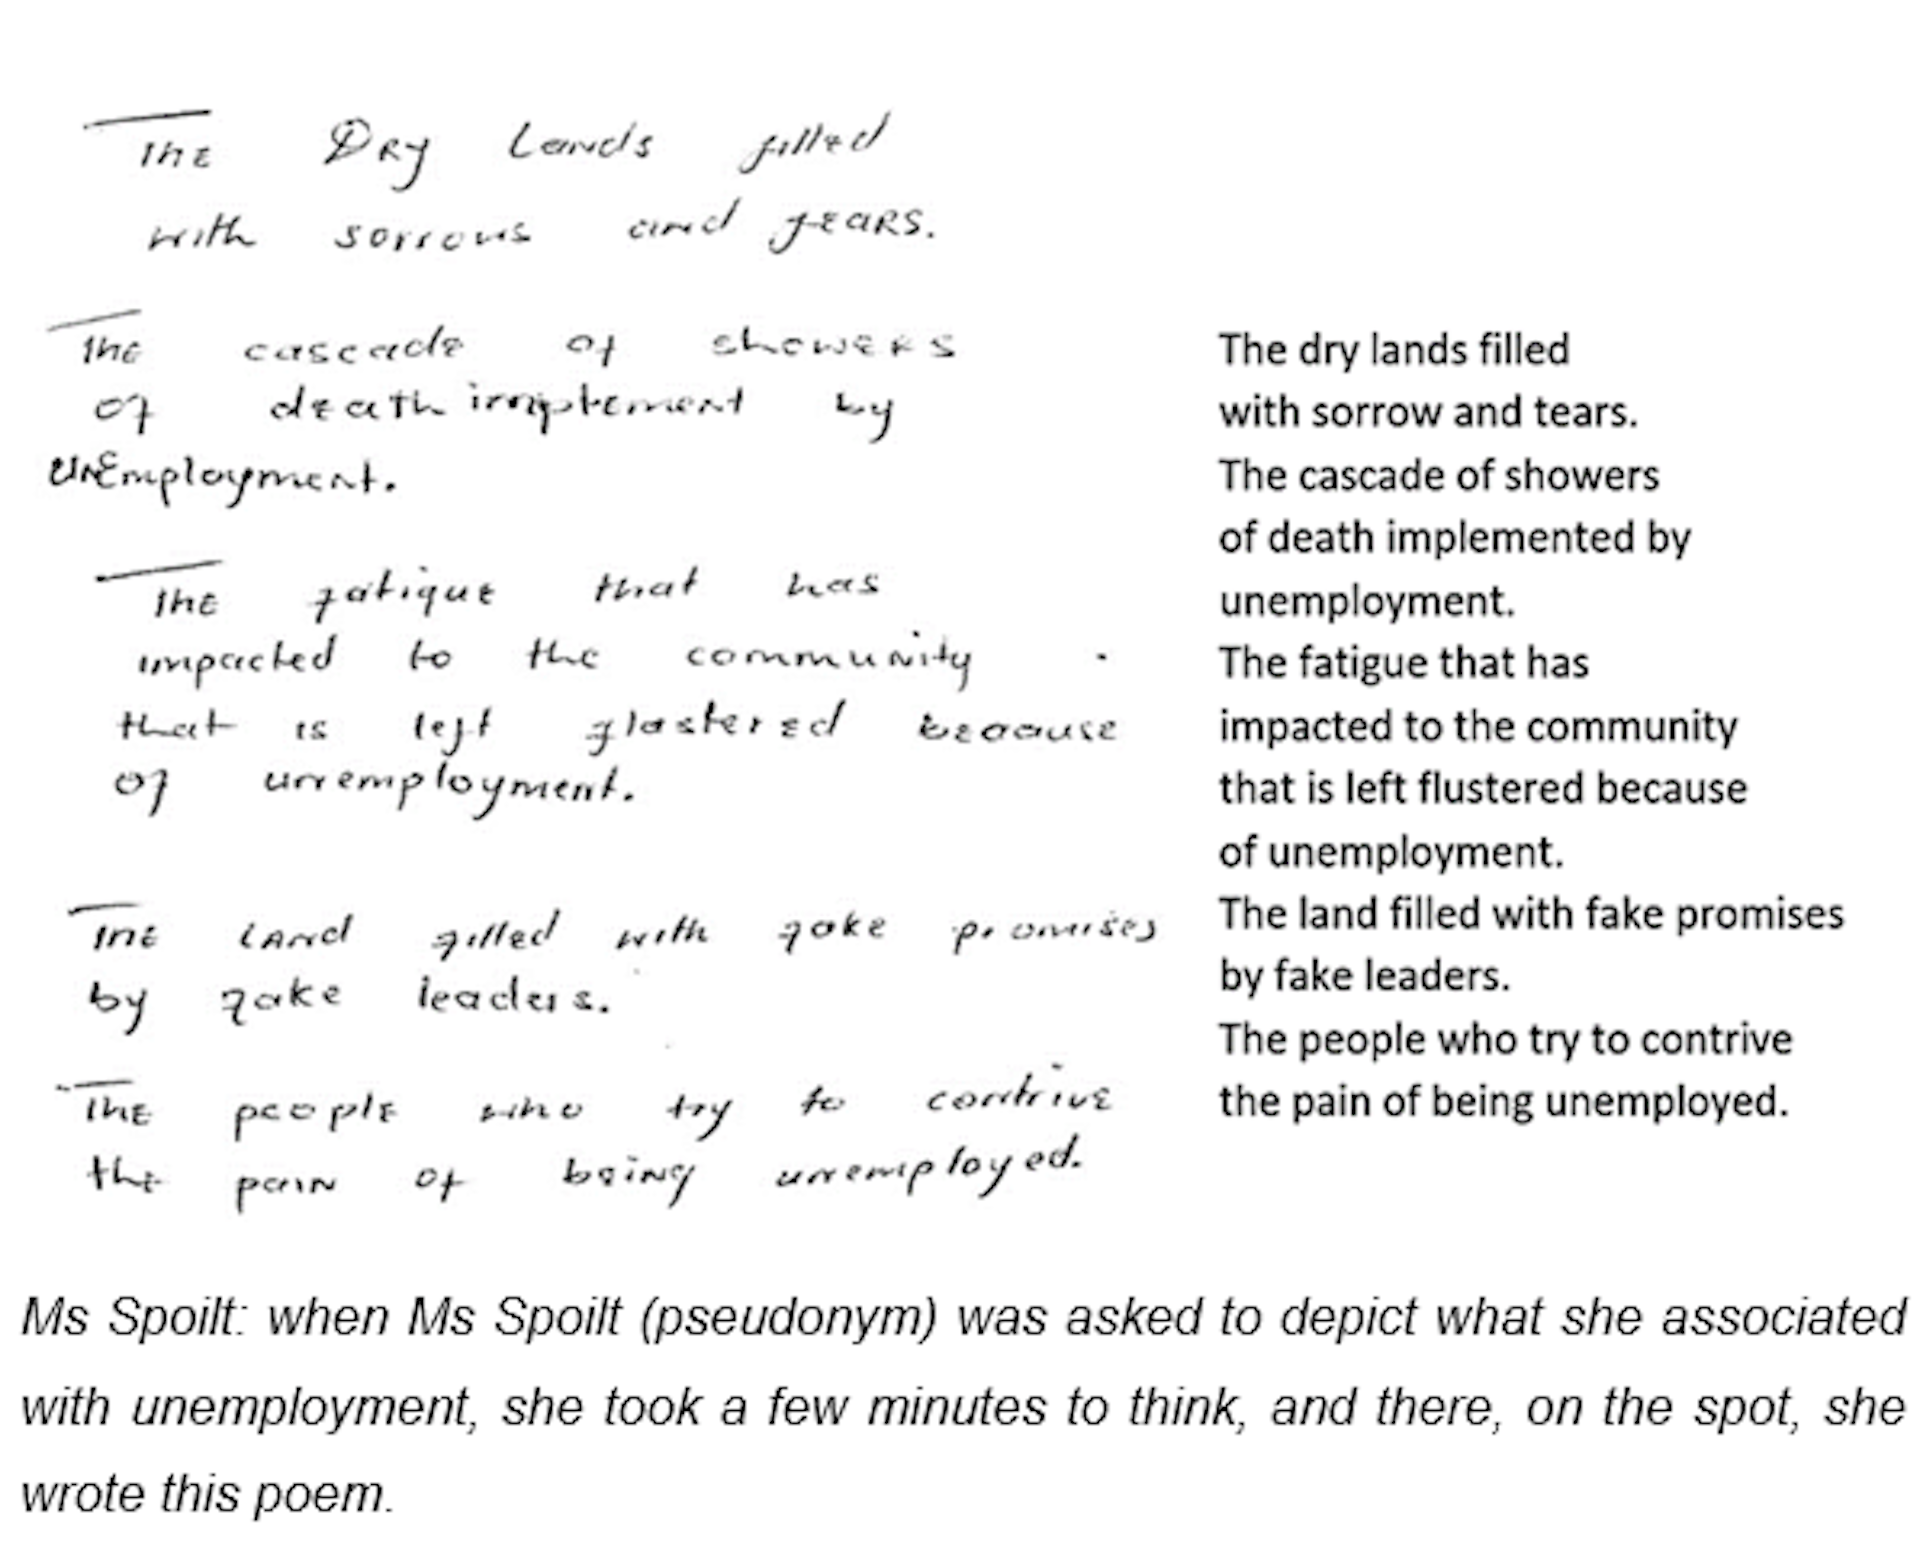 The Dry Lands filled
with sorrows and fears.
The cascade of showers
of death implement by
unEmployment.
The fatique that has
impacted to the community
that is left flastered because
of unemployment.
The Land filled with fake promises
by fake leaders.
The people who try to contrive
the pain of being unemployed.
The dry lands filled
with sorrow and tears.
The cascade of showers
of death implemented by
unemployment.
The fatigue that has
impacted to the community
that is left flustered because
of unemployment.
The land filled with fake promises
by fake leaders.
The people who try to contrive
the pain of being unemployed.
Ms Spoilt: when Ms Spoilt (pseudonym) was asked to depict what she associated
with unemployment, she took a few minutes to think, and there, on the spot, she
wrote this poem.